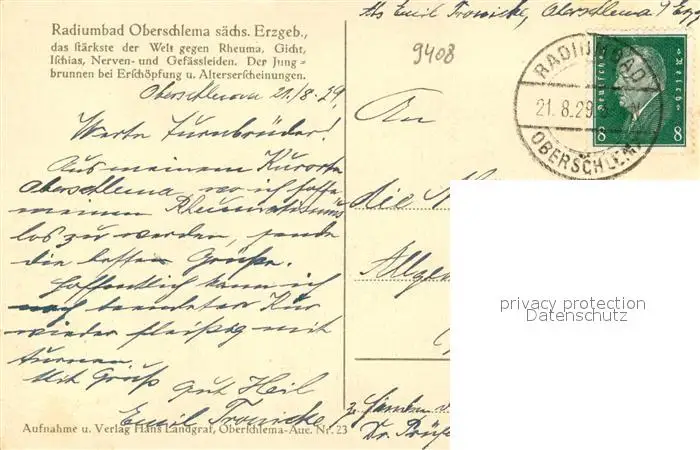 Radiumbad Oberschlema sächs. Erzgeb.,
das stärkste der Welt gegen Rheuma, Gicht,
Ischias, Nerven- und Gefässleiden. Der Jung-
brunnen bei Erschöpfung u. Alterserscheinungen.
Oberschlema 21./8. 29.
Werte Turnbrüder!
Aus meinem Kurorte
Oberschlema, wo ich hoffe
meinen Rheumatismus
los zu werden, sende
die besten Grüße.
Hoffentlich kann ich
nach beendeter Kur
wieder fleißig mit
turnen.
Mit Gruß
Gut Heil
Emil Tronicke
Aufnahme u. Verlag Hans Landgraf, Oberschlema-Aue. Nr. 23
Abs Emil Tronicke, Oberschlema / Erzg
9408
RADIUMBAD
21.8.29
OBERSCHLEMA
Deutsches Reich
8 8
An
die
Allge
z. Händen
Dr.
privacy protection
Datenschutz